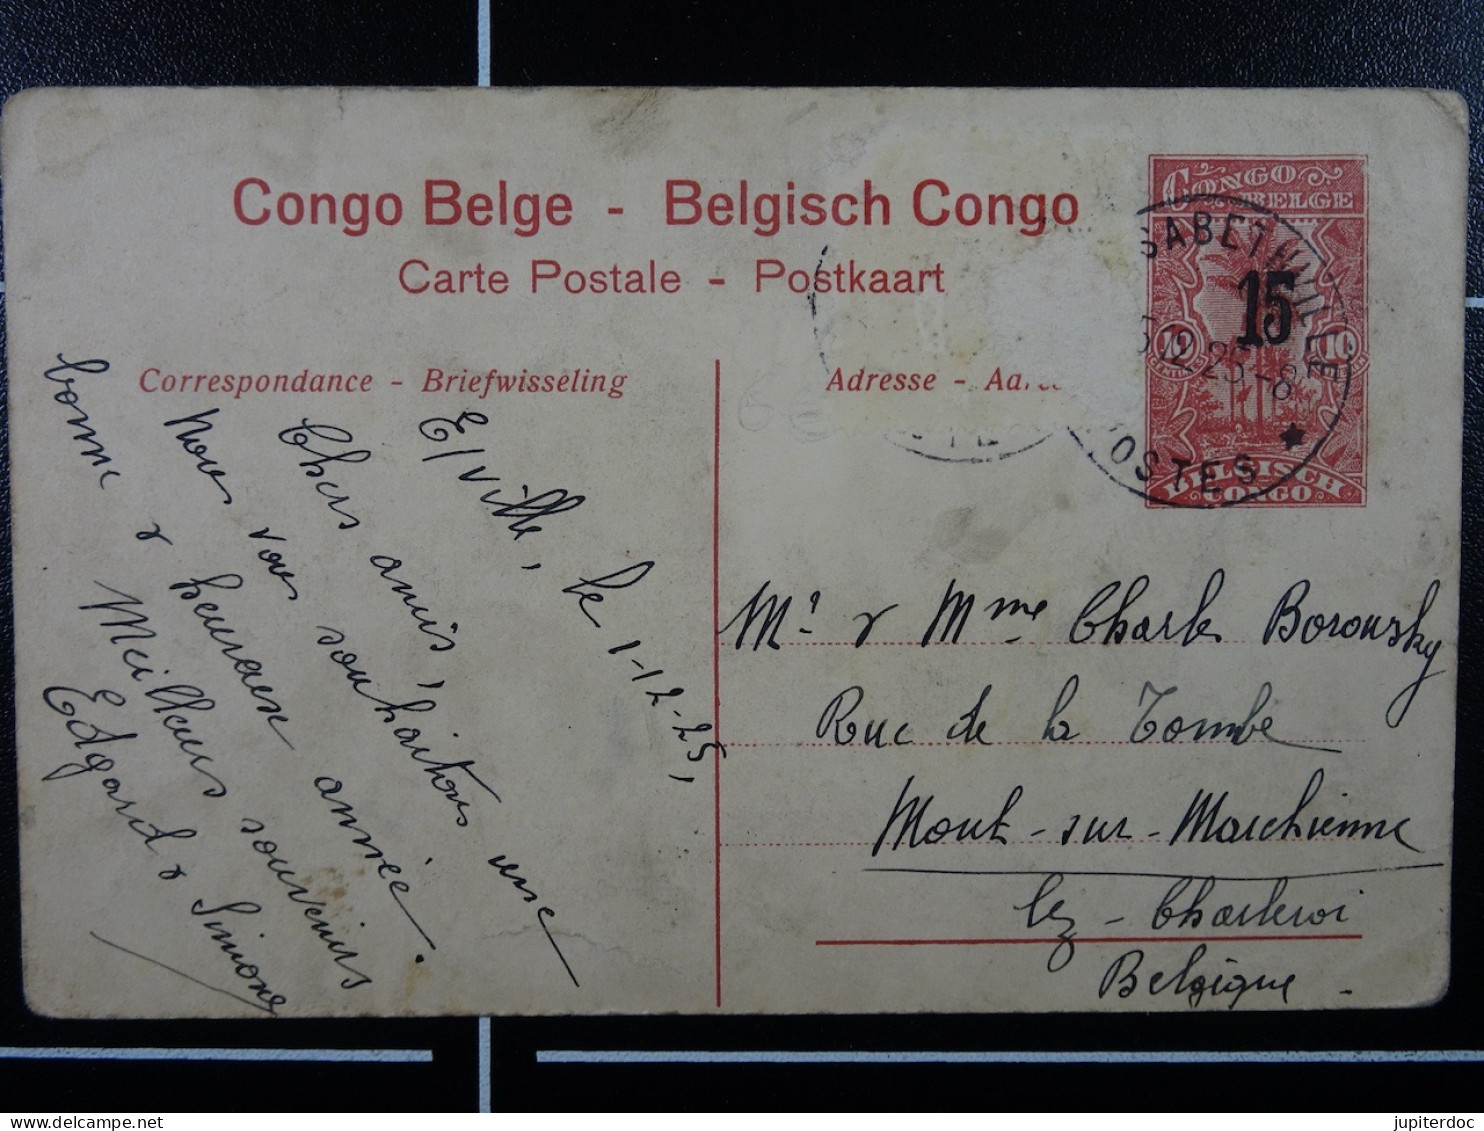 Congo Belge - Belgisch Congo
Carte Postale - Postkaart
Correspondance - Briefwisseling
Adresse -
CONGO
BELGE
15
10 10
BELGISCH
CONGO
SABETHVILLE
12 25 -8
OSTES
E/ville, le 1-12-25,
Chers amis,
Nous vous souhaitons une
bonne & heureuse année.
Meilleurs souvenirs
Edgard & Simone
Mr & Mme Charles Borousky
Rue de la Tombe
Mont-sur-Marchienne
lez-Charleroi
Belgique -
jupiterdoc